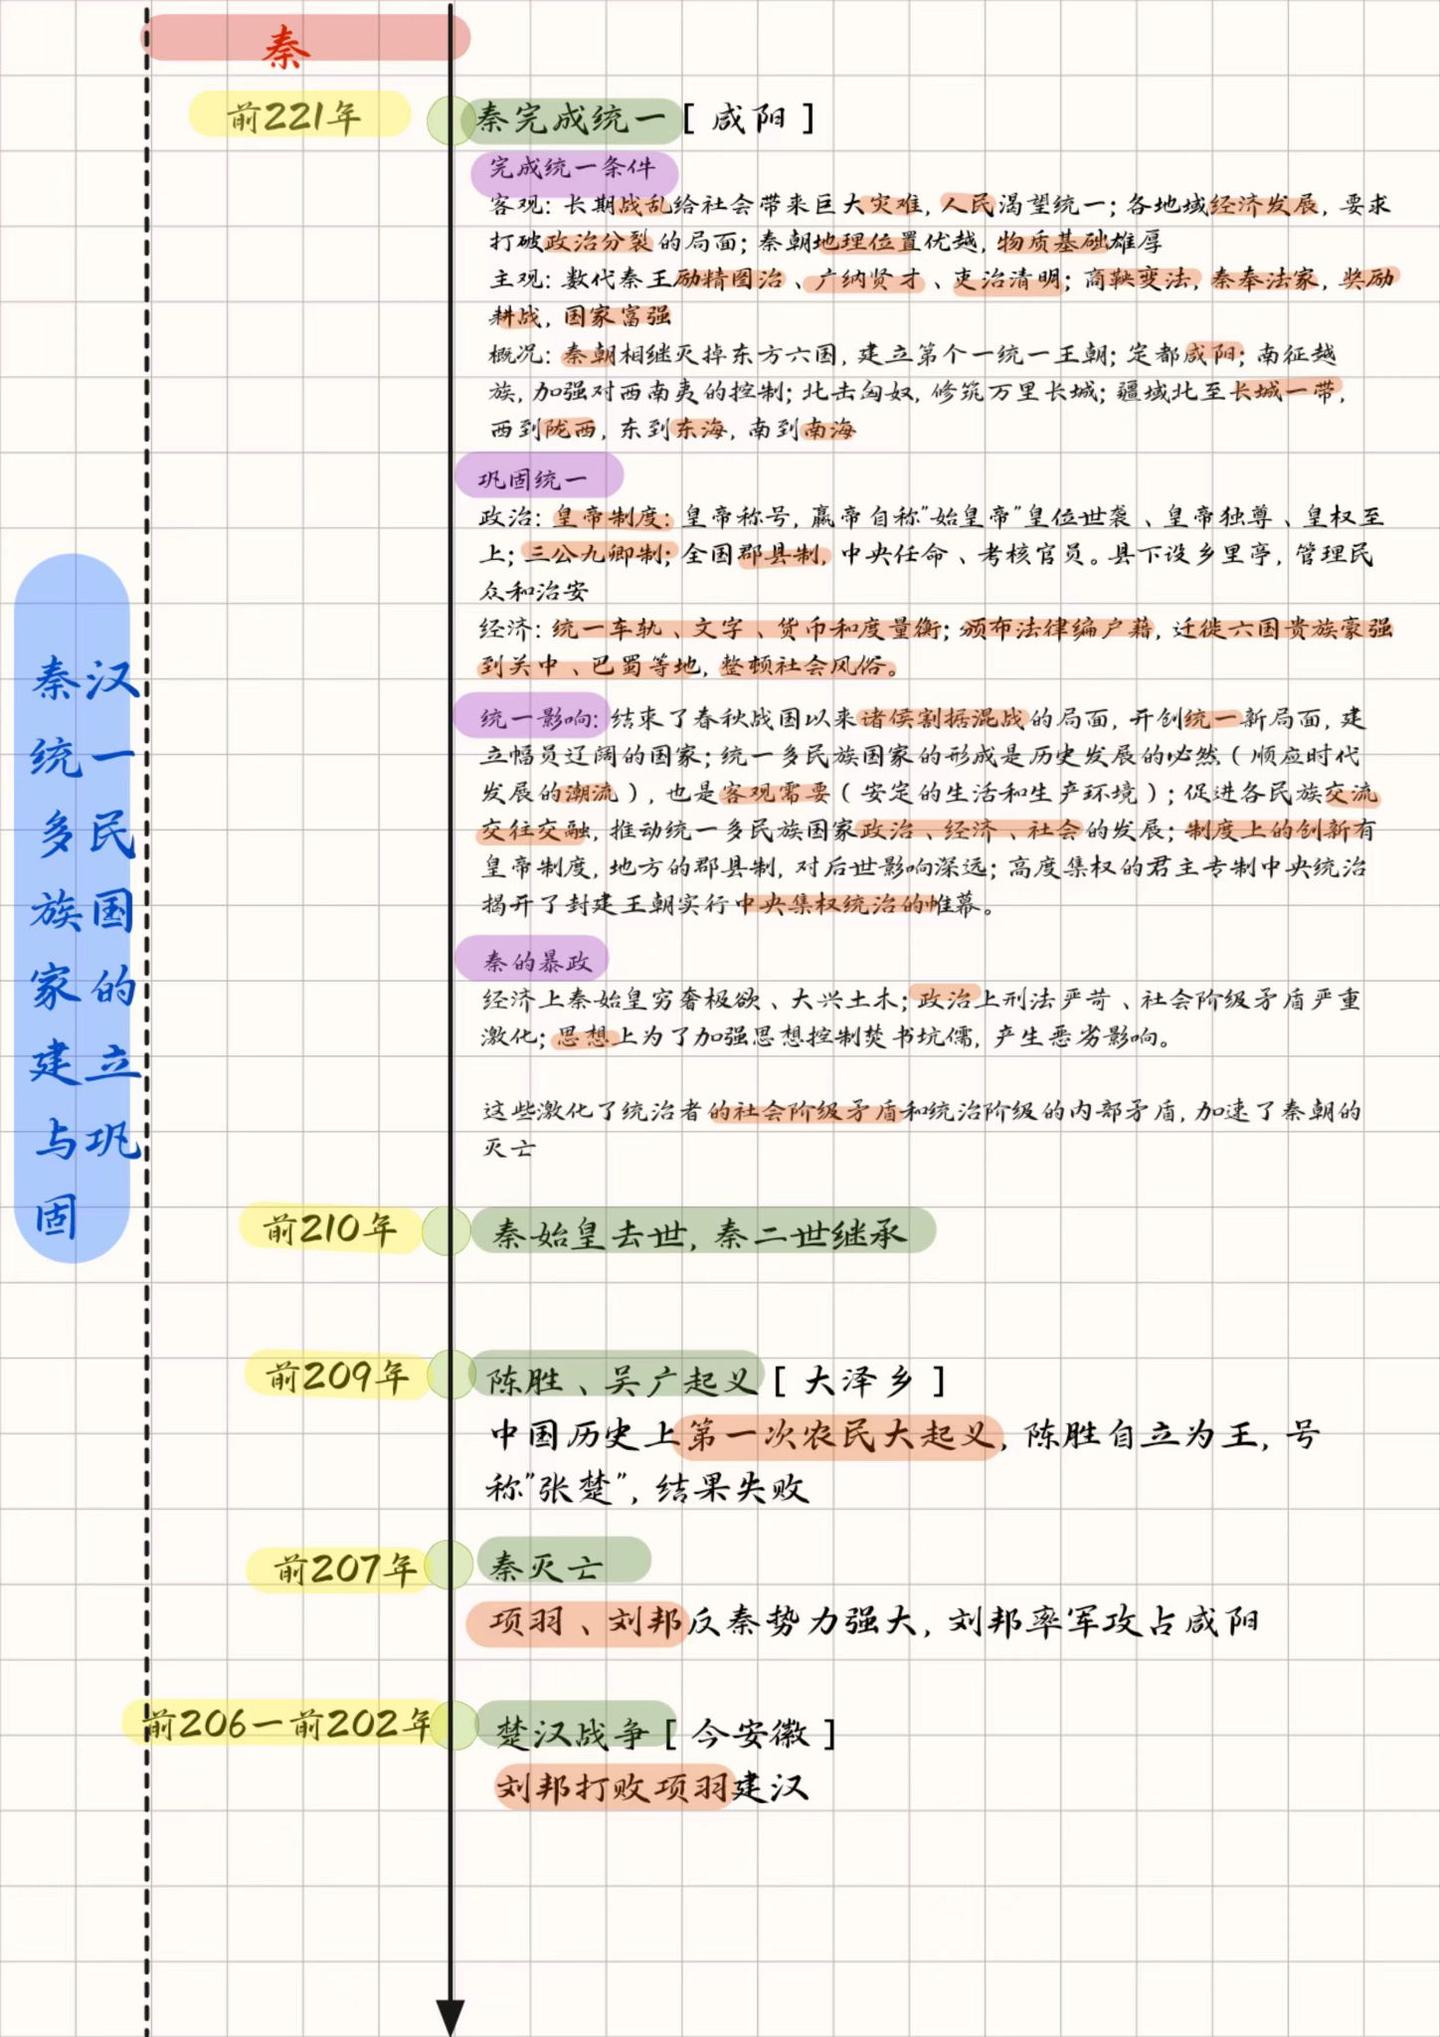 秦
前221年
秦完成统一[咸阳]
完成统一条件
客观：长期战乱给社会带来巨大灾难，人民渴望统一；各地域经济发展，要求
打破政治分裂的局面；秦朝地理位置优越，物质基础雄厚
主观：数代秦王励精图治、广纳贤才、吏治清明；商鞅变法，秦奉法家，奖励
耕战，国家富强
概况：秦朝相继灭掉东方六国，建立第个一统一王朝；定都咸阳；南征越
族，加强对西南夷的控制；北击匈奴，修筑万里长城；疆域北至长城一带，
西到陇西，东到东海，南到南海
巩固统一
政治：皇帝制度：皇帝称号，嬴帝自称"始皇帝"皇位世袭、皇帝独尊、皇权至
上；三公九卿制；全国郡县制，中央任命、考核官员。县下设乡里亭，管理民
众和治安
经济：统一车轨、文字、货币和度量衡；颁布法律编户籍，迁徙六国贵族豪强
到关中、巴蜀等地，整顿社会风俗。
统一影响：结束了春秋战国以来诸侯割据混战的局面，开创统一新局面，建
立幅员辽阔的国家；统一多民族国家的形成是历史发展的必然（顺应时代
发展的潮流），也是客观需要（安定的生活和生产环境）；促进各民族交流
交往交融，推动统一多民族国家政治、经济、社会的发展；制度上的创新有
皇帝制度，地方的郡县制，对后世影响深远；高度集权的君主专制中央统治
揭开了封建王朝实行中央集权统治的帷幕。
秦的暴政
经济上秦始皇穷奢极欲、大兴土木；政治上刑法严苛、社会阶级矛盾严重
激化；思想上为了加强思想控制焚书坑儒，产生恶劣影响。
这些激化了统治者的社会阶级矛盾和统治阶级的内部矛盾，加速了秦朝的
灭亡
前210年
秦始皇去世，秦二世继承
前209年
陈胜、吴广起义[大泽乡]
中国历史上第一次农民大起义，陈胜自立为王，号
称"张楚"，结果失败
前207年
秦灭亡
项羽、刘邦反秦势力强大，刘邦率军攻占咸阳
前206一前202年
楚汉战争[今安徽]
刘邦打败项羽建汉
秦汉
统一
多民
族国
家的
建立
与巩
固